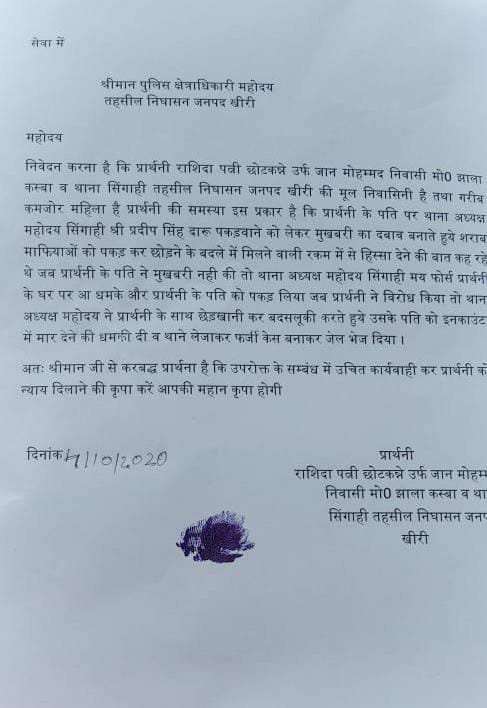 सेवा में
श्रीमान पुलिस क्षेत्राधिकारी महोदय
तहसील निघासन जनपद खीरी
महोदय
निवेदन करना है कि प्रार्थिनी राशिदा पत्नी छोटकन्ने उर्फ जान मोहम्मद निवासी मो0 झाला
कस्बा व थाना सिंगाही तहसील निघासन जनपद खीरी की मूल निवासिनी है तथा गरीब
कमजोर महिला है प्रार्थनी की समस्या इस प्रकार है कि प्रार्थनी के पति पर थाना अध्यक्ष
महोदय सिंगाही श्री प्रदीप सिंह दारू पकड़वाने को लेकर मुखबरी का दबाव बनाते हुये शराब
माफियाओं को पकड़ कर छोड़ने के बदले में मिलने वाली रकम में से हिस्सा देने की बात कह रहे
थे जब प्रार्थनी के पति ने मुखबरी नही की तो थाना अध्यक्ष महोदय सिंगाही मय फोर्स प्रार्थनी
के घर पर आ धमके और प्रार्थनी के पति को पकड़ लिया जब प्रार्थनी ने विरोध किया तो थान
अध्यक्ष महोदय ने प्रार्थनी के साथ छेड़खानी कर बदसलूकी करते हुये उसके पति को इनकाउंट
में मार देने की धमकी दी व थाने लेजाकर फर्जी केस बनाकर जेल भेज दिया।
अतः श्रीमान जी से करबद्ध प्रार्थना है कि उपरोक्त के सम्बंध में उचित कार्यवाही कर प्रार्थनी को
न्याय दिलाने की कृपा करें आपकी महान कृपा होगी
दिनांक /10/2020
प्रार्थनी
राशिदा पत्नी छोटकन्ने उर्फ जान मोहम्म
निवासी मो0 झाला कस्बा व था
सिंगाही तहसील निघासन जनप
खीरी